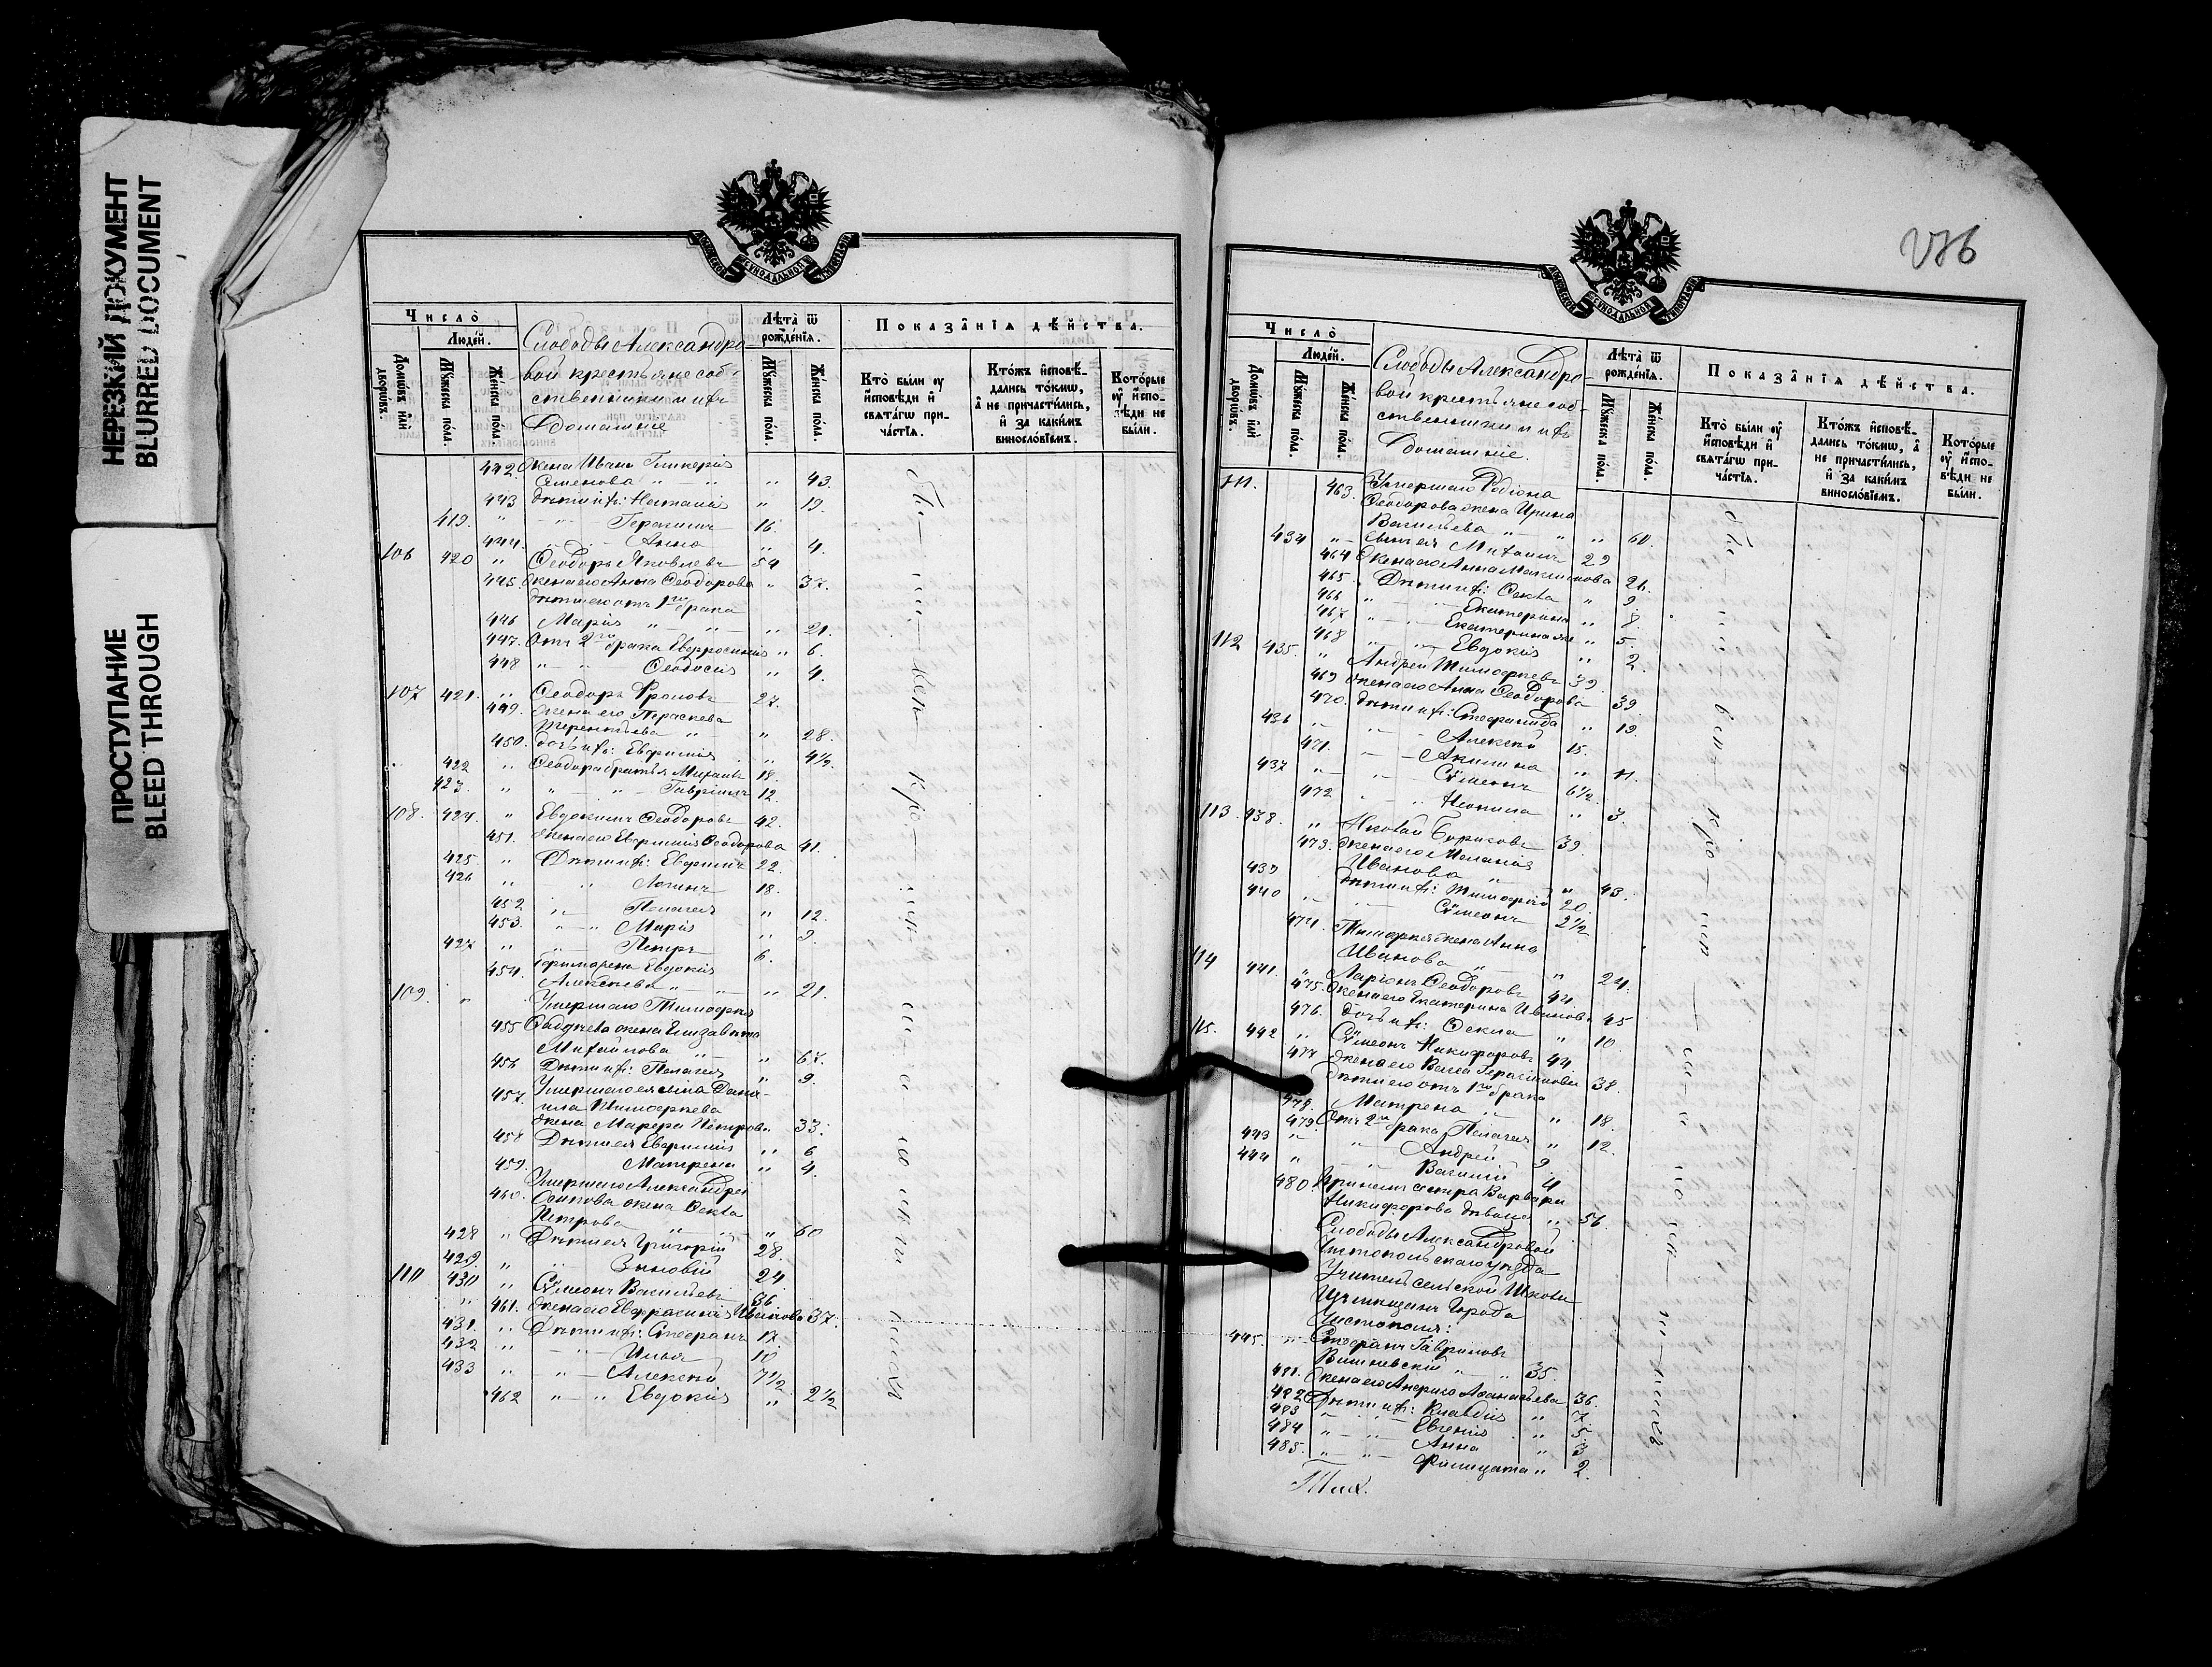 НЕРЕЗКИЙ ДОКУМЕНТ
BLURRED DOCUMENT
ПРОСТУПАНИЕ
BLEED THROUGH
Число̀
Люде́й.
Домѡ́въ и҆лѝ дворѡ́въ.
Мꙋ́жеска по́ла.
Же́нска по́ла.
Слободы Александро-
вой крестьяне соб-
ственники и ихъ
Домашніе
Лѣ́та ѿ рожде́нїѧ.
Мꙋ́жеска по́ла.
Же́нска по́ла.
Показа̑нїѧ дѣ́йства.
Кто̀ бы́ли оу҆ и҆сповѣ́ди и҆ свѧта́гѡ при-
ча́стїѧ.
Кто́жъ и҆сповѣ́-
дались то́кмѡ, а҆ не причасти́лись, и҆ за каки́мъ виносло́вїемъ.
Кото́рые оу҆ и҆спо-
вѣ́ди не бы́ли.
442. Жена Ивана Гликерія
Семенова " " " 43.
443 Дѣти ихъ: Наталія " 19.
419. " Герасимъ 16.
444. " Анна " 4.
106 420 " Ѳеодоръ Яковлевъ 54
445. Жена его Анна Ѳеодорова " 37.
Дѣти его отъ 1го брака
446 Марія " " " 21.
447. Отъ 2го брака Евфросинія " 6.
448 " " Ѳеодосія " 4.
107 421. " Ѳеодоръ Фроловъ 27.
449. Жена его Параскева
Терентьева " " 28.
450. Дочь ихъ: Евфимія " 4½.
422 " Ѳеодора братья Михаилъ 18.
423. " " " Гавріилъ 12.
108. 424. " Евдокимъ Ѳеодоровъ 42.
451. Жена его Евфимія Ѳеодорова 41.
425. " Дѣти ихъ: Евфимъ 22.
426 " " Логинъ 18.
452. " Пелагея " 12.
453. " " Марія " 9.
427 " " Петръ 6.
454. Ефима жена Евдокія
Алексѣева " " " 21.
109. " Умершаго Тимофея
455 жена Елизавета
Михайлова " " 67.
456 Дѣти ихъ: Пелагея " 9.
457. Умершаго ея сына Дани-
ила Тимофеева
жена Марфа Петрова 33.
458 Дѣти ея Евфимія " 6
459. Матрена " 4.
Умершаго Александра
460. Осипова жена Ѳекла
Петрова " " " 60
428 " Дѣти ея Григорій 28.
429. " " Зиновій 24
110 430 " Сѷмеонъ Васильевъ 36
" 461. Жена его Евфросинія Иванова 37.
431. " Дѣти ихъ: Стефанъ 17.
432 " " Илья 10
433 " " Алексѣй 7½
462 " " Евдокія " 2½
бы-
ли-
кро-
мѣ
176
Число̀
Люде́й.
Домѡ́въ и҆лѝ дворѡ́въ.
Мꙋ́жеска по́ла.
Же́нска по́ла.
Слободы Александро-
вой крестьяне соб-
ственники и ихъ
Домашніе.
Лѣ́та ѿ рожде́нїѧ.
Мꙋ́жеска по́ла.
Же́нска по́ла.
Показа̑нїѧ дѣ́йства.
Кто̀ бы́ли оу҆ и҆сповѣ́ди и҆ свѧта́гѡ при-
ча́стїѧ.
Кто́жъ и҆сповѣ́-
дались то́кмѡ, а҆ не причасти́лись, и҆ за каки́мъ виносло́вїемъ.
Кото́рые оу҆ и҆спо-
вѣ́ди не бы́ли.
111. 463. Умершаго Родіона
Ѳеодорова жена Ирина
Васильева " " " 60.
434 " Сынъ ея Михаилъ 29
464 Жена его Анна Максимова 26.
465. Дѣти ихъ: Ѳекла " 9.
466 " " Екатерина " 8.
467 " " Екатерина же " 5.
468 " " Евдокія " 2.
112 435. " Андрей Тимофеевъ 39.
469 Жена его Анна Ѳеодорова 39.
470. Дѣти ихъ: Стефанида " 19.
436 " " Алексѣй 15.
471. " Акилина " 11.
437 " " Сѷмеонъ 6½.
472 " " Неонила " 3.
113. 438. " Николай Борисовъ 39.
473. Жена его Меланія
Иванова " " 43.
439 Дѣти ихъ: Тимофей 20.
440 " " Сѷмеонъ 2½
474. Тимофея жена Анна
Иванова " " 24.
114 441. " Ларіонъ Ѳеодоровъ 44.
475. Жена его Екатерина Иванова 45
476. Дочь ихъ: Ѳекла " 10.
115. 442 " Сѷмеонъ Никифоровъ 44
477 Жена его Васса Герасимова 38.
Дѣти его отъ 1го брака
478. Матрена " " 18.
479. Отъ 2го брака Пелагея " 12.
443 " " Андрей 9
444 " " Василій 4
480. сестра Варвара
Никифорова дѣвица " 56.
Слободы Александровой
Чистопольскаго уѣзда
Учитель сельской Школы
изъ мѣщанъ Города
Чистополя:
445. " Стефанъ Гавриловъ
Вишневскій " " 35.
481. Жена его Аѳанасьева 36.
482 Дѣти ихъ: Клавдія " 7.
483 " " Евгенія " 5.
484 " " Анна " 3
485. " " Филицата " 2.
Тих.